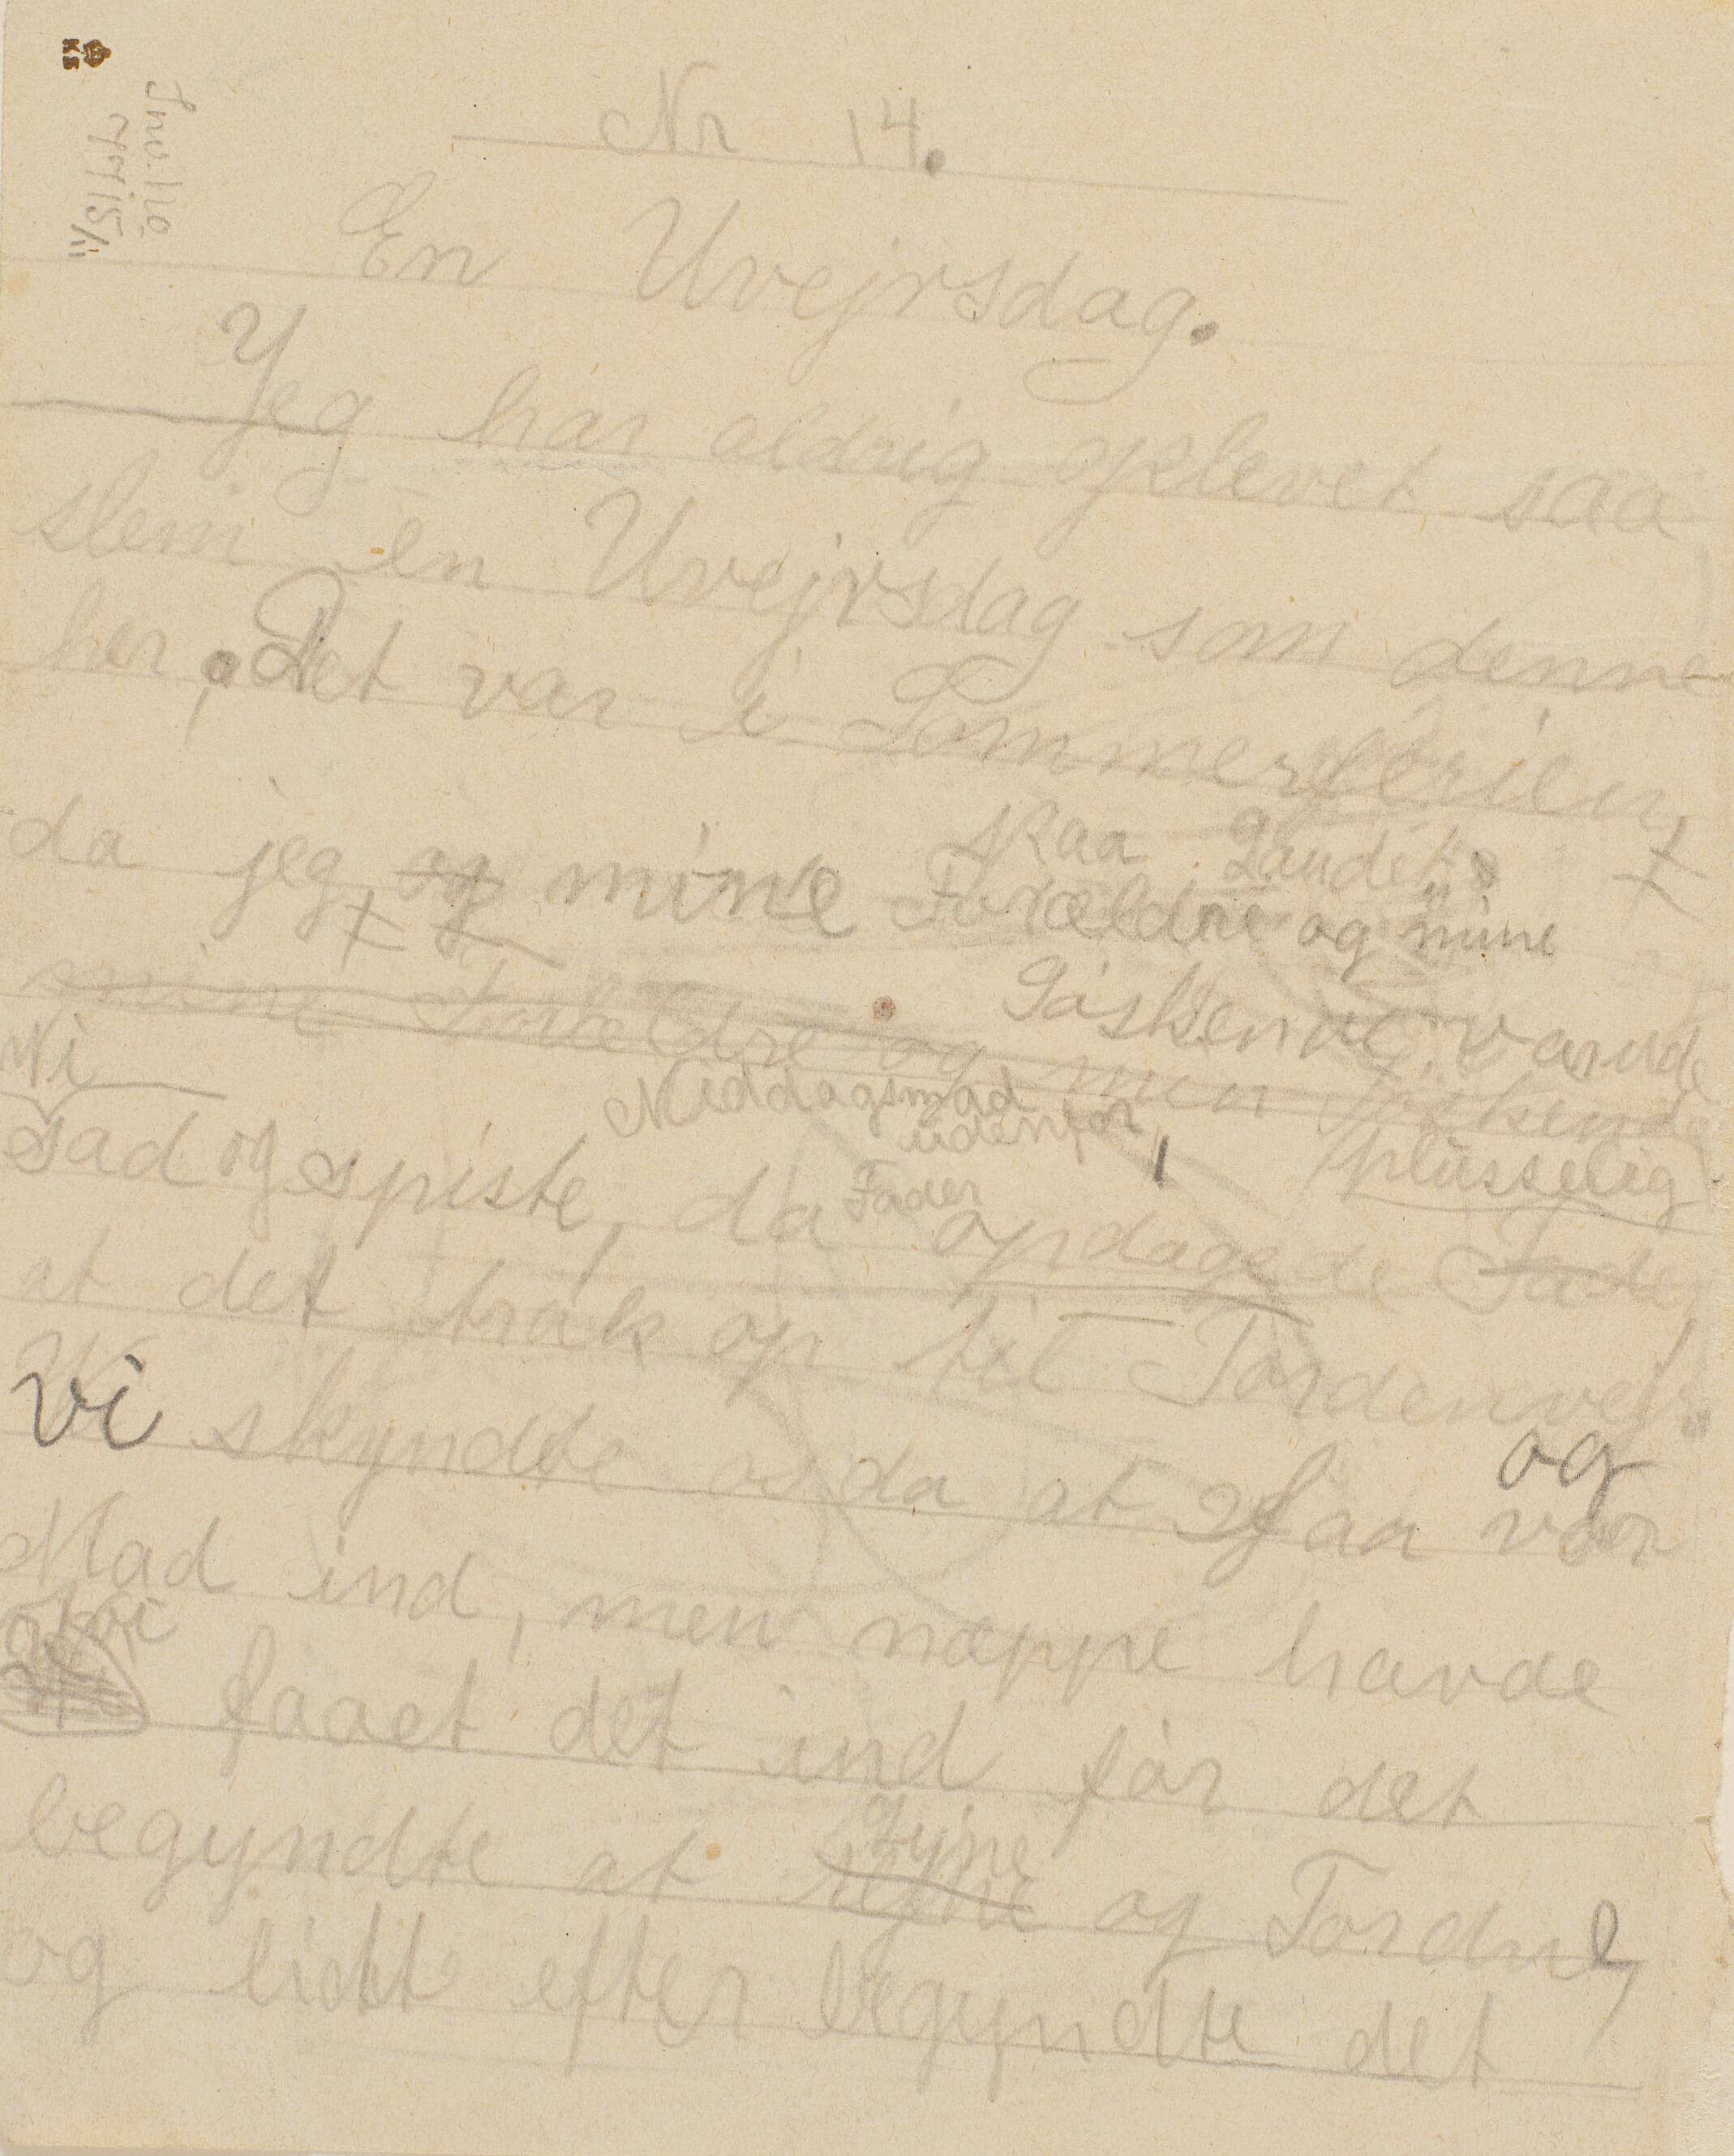 Nr 14.
En Uvejrsdag.
Jeg har aldrig oplevet saa
slem en Uvejrsdag som denne
her, Det var i Sommerferien,
paa Landet.
da jeg og mine Forældre og mine
Søskende var ude
mine Forældre og min Søskende
Vi
Middagsmad
udenfor, plusselig
sad og spiste, da Fader opdagede Fader
at det trak op til Tordenvejr.
og
Vi skyndte os da at faa vor
Mad ind, men næppe havde
vi
faaet det ind før det
Lyne
begyndte at rejne og Tordne,
og lidt efter begyndte det